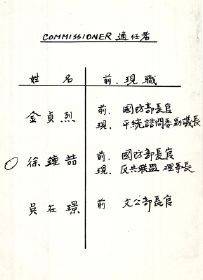 COMMISSIONER 適任者
姓 名 前.現職
金貞烈 前. 國防部長官
現. 平統諮問委副議長
○ 徐鐘喆 前. 國防部長官
現. 反共联盟 理事長
吳在璟 前 文公部長官